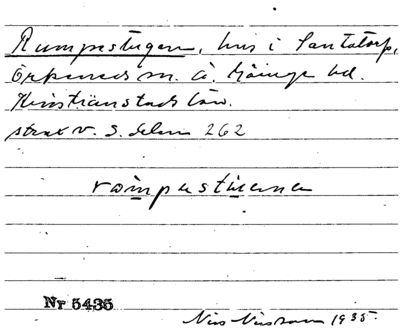 Rumpestugan, hus i Santatorp,
Örkeneds sn. Ö. Göinge hd.
Kristianstads län.
strax v. S. delen 262
rompastuena
Nr 5435
Nils Nilsson 1935